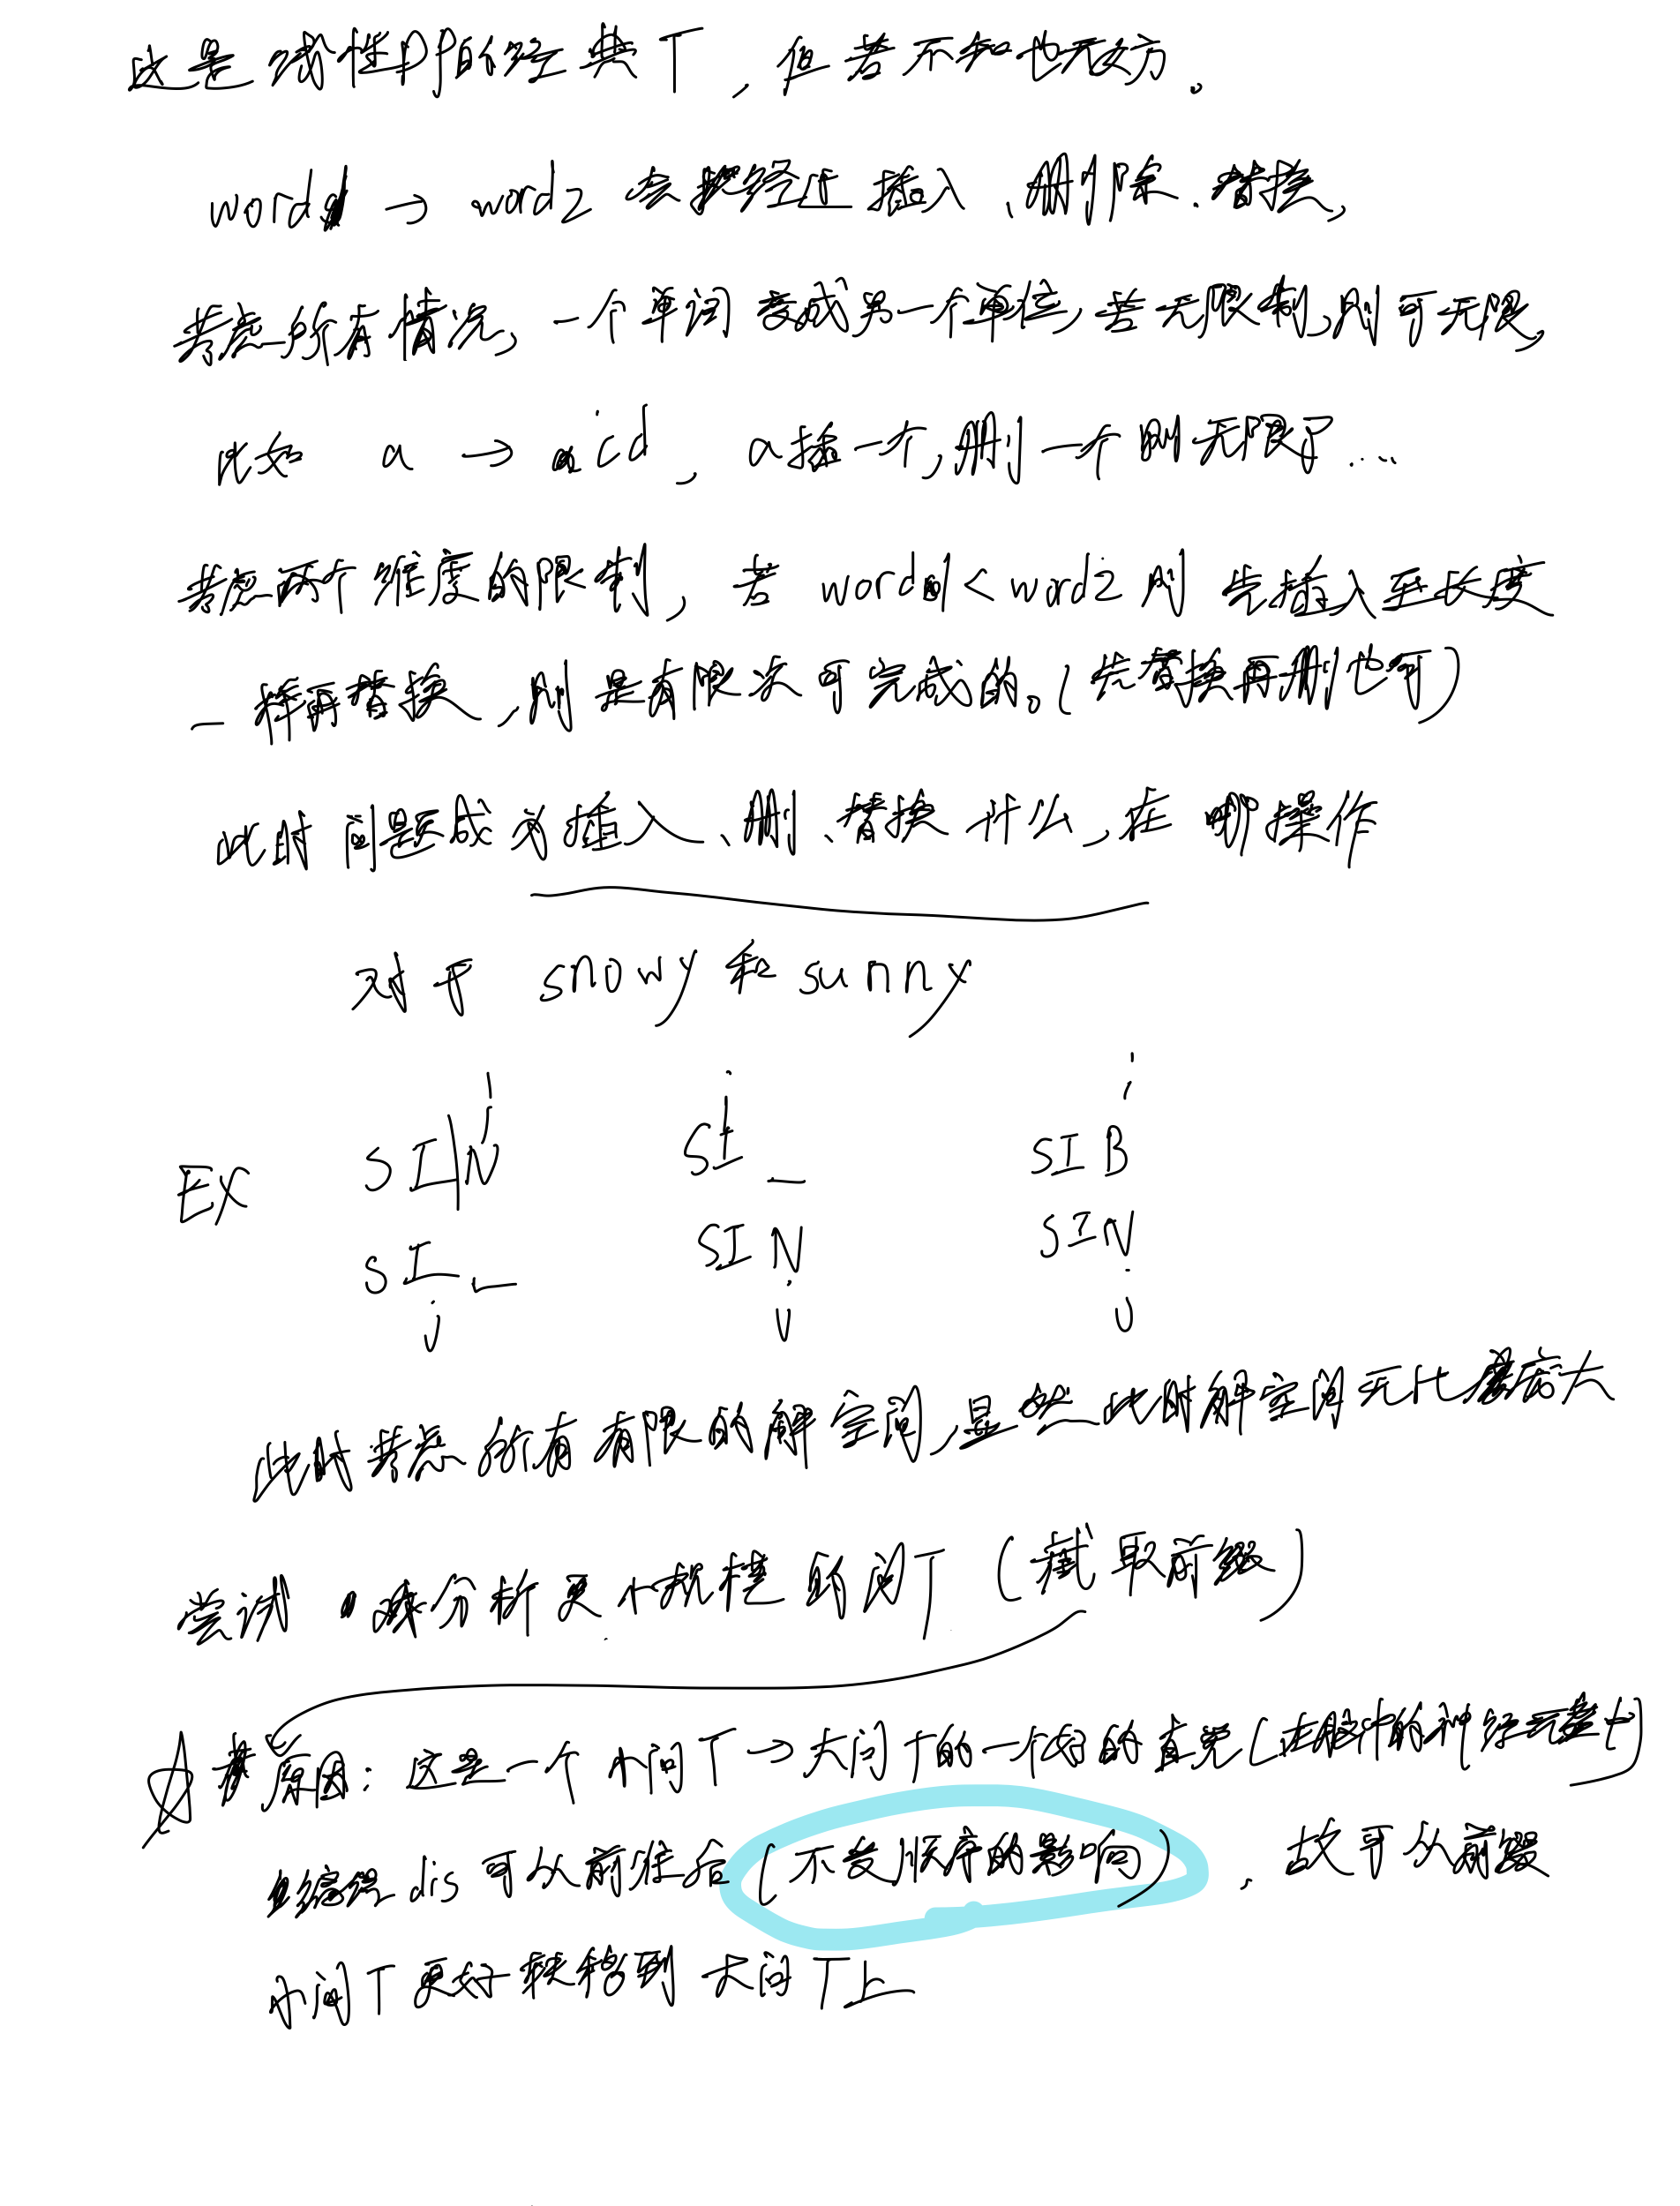 这是线性DP的经典T，但若不知也无妨。
word1 → word2 会经过插入、删除、替换，
考虑所有情况，一个单词变成另一个单位，若无限制，则可无限，
比如 a → cd，a插一个，删一个则无限了.....
考虑两个维度的限制，若 word1 < word2 则先插入至长度
一样再替换，则是有限次可完成的。(先替换再删也可)
此时问题成为插入、删、替换什么，在哪操作
对于 snowy 和 sunny
i i i
EX SI|N SI _ SIB
SI _ SIN SIN
j j j
此时考虑所有有限的解空间，显然此时解空间无比庞大
尝试分析更小规模的问T (截取前缀)
原因：这是一个小问T → 大问T的一个好的直觉(在脑中的神经元
且编辑dis可从前往后(不受顺序的影响)，故可从前缀
小问T更好转移到大问T上